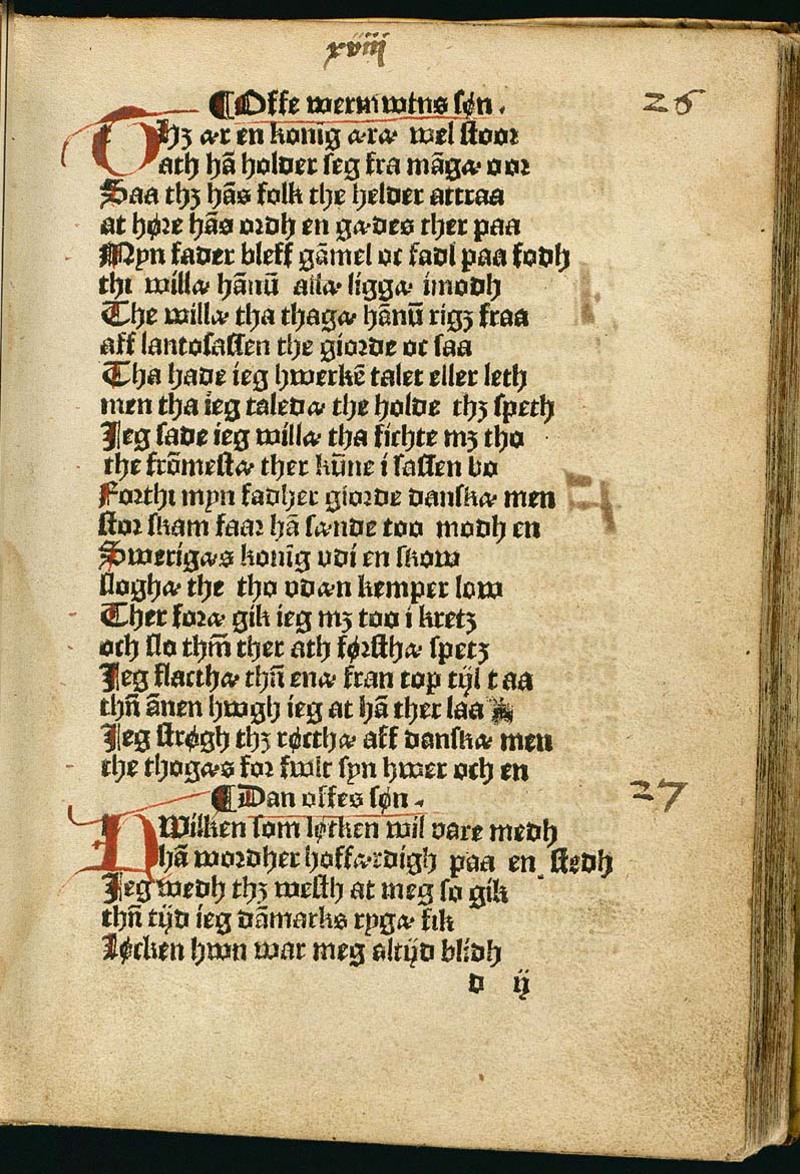 xviij
¶Offe wermwtns søn.
26
Thꝫ ær en konīg æræ wel stoor
ath hā holder seg fra māgæ oor
Saa thꝫ hās folk the helder attraa
at høre hās ordh en gædes ther paa
Myn fader bleff gāmel oc fadl paa fodh
thi willæ hānū allæ liggæ imodh
The willæ tha thagæ hānū rigꝫ fraa
aff lantosassen the giorde oc saa
Tha hade ieg hwerkē talet eller leth
men tha ieg taledæ the holde thꝫ speth
Jeg sade ieg willæ tha fichte mꝫ tho
the frōmestæ ther kūne i sassen bo
Forthi myn fadher giorde danskæ men
stor skam faar hā sænde too modh en
Swerigæs konīg vdi en skow
sloghæ the tho vdæn kemper low
Ther foræ gik ieg mꝫ too i kretꝫ
och slo thm̄ ther ath førsthæ spetꝫ
Jeg flacthæ thn̄ enæ fran top tijl taa
thn̄ ānen hwgh ieg at hā ther laa
Jeg strøgh thꝫ røcthæ aff danskæ men
the thogæs for fwlt syn hwer och en
¶Dan offes søn.
27
HWilken som løcken wil vare medh
hā wordher hoffærdigh paa en stedh
Jeg wedh thꝫ westh at meg so gik
thn̄ tijd ieg dāmarks rygæ fik
Løcken hwn war meg altijd blidh
d ij